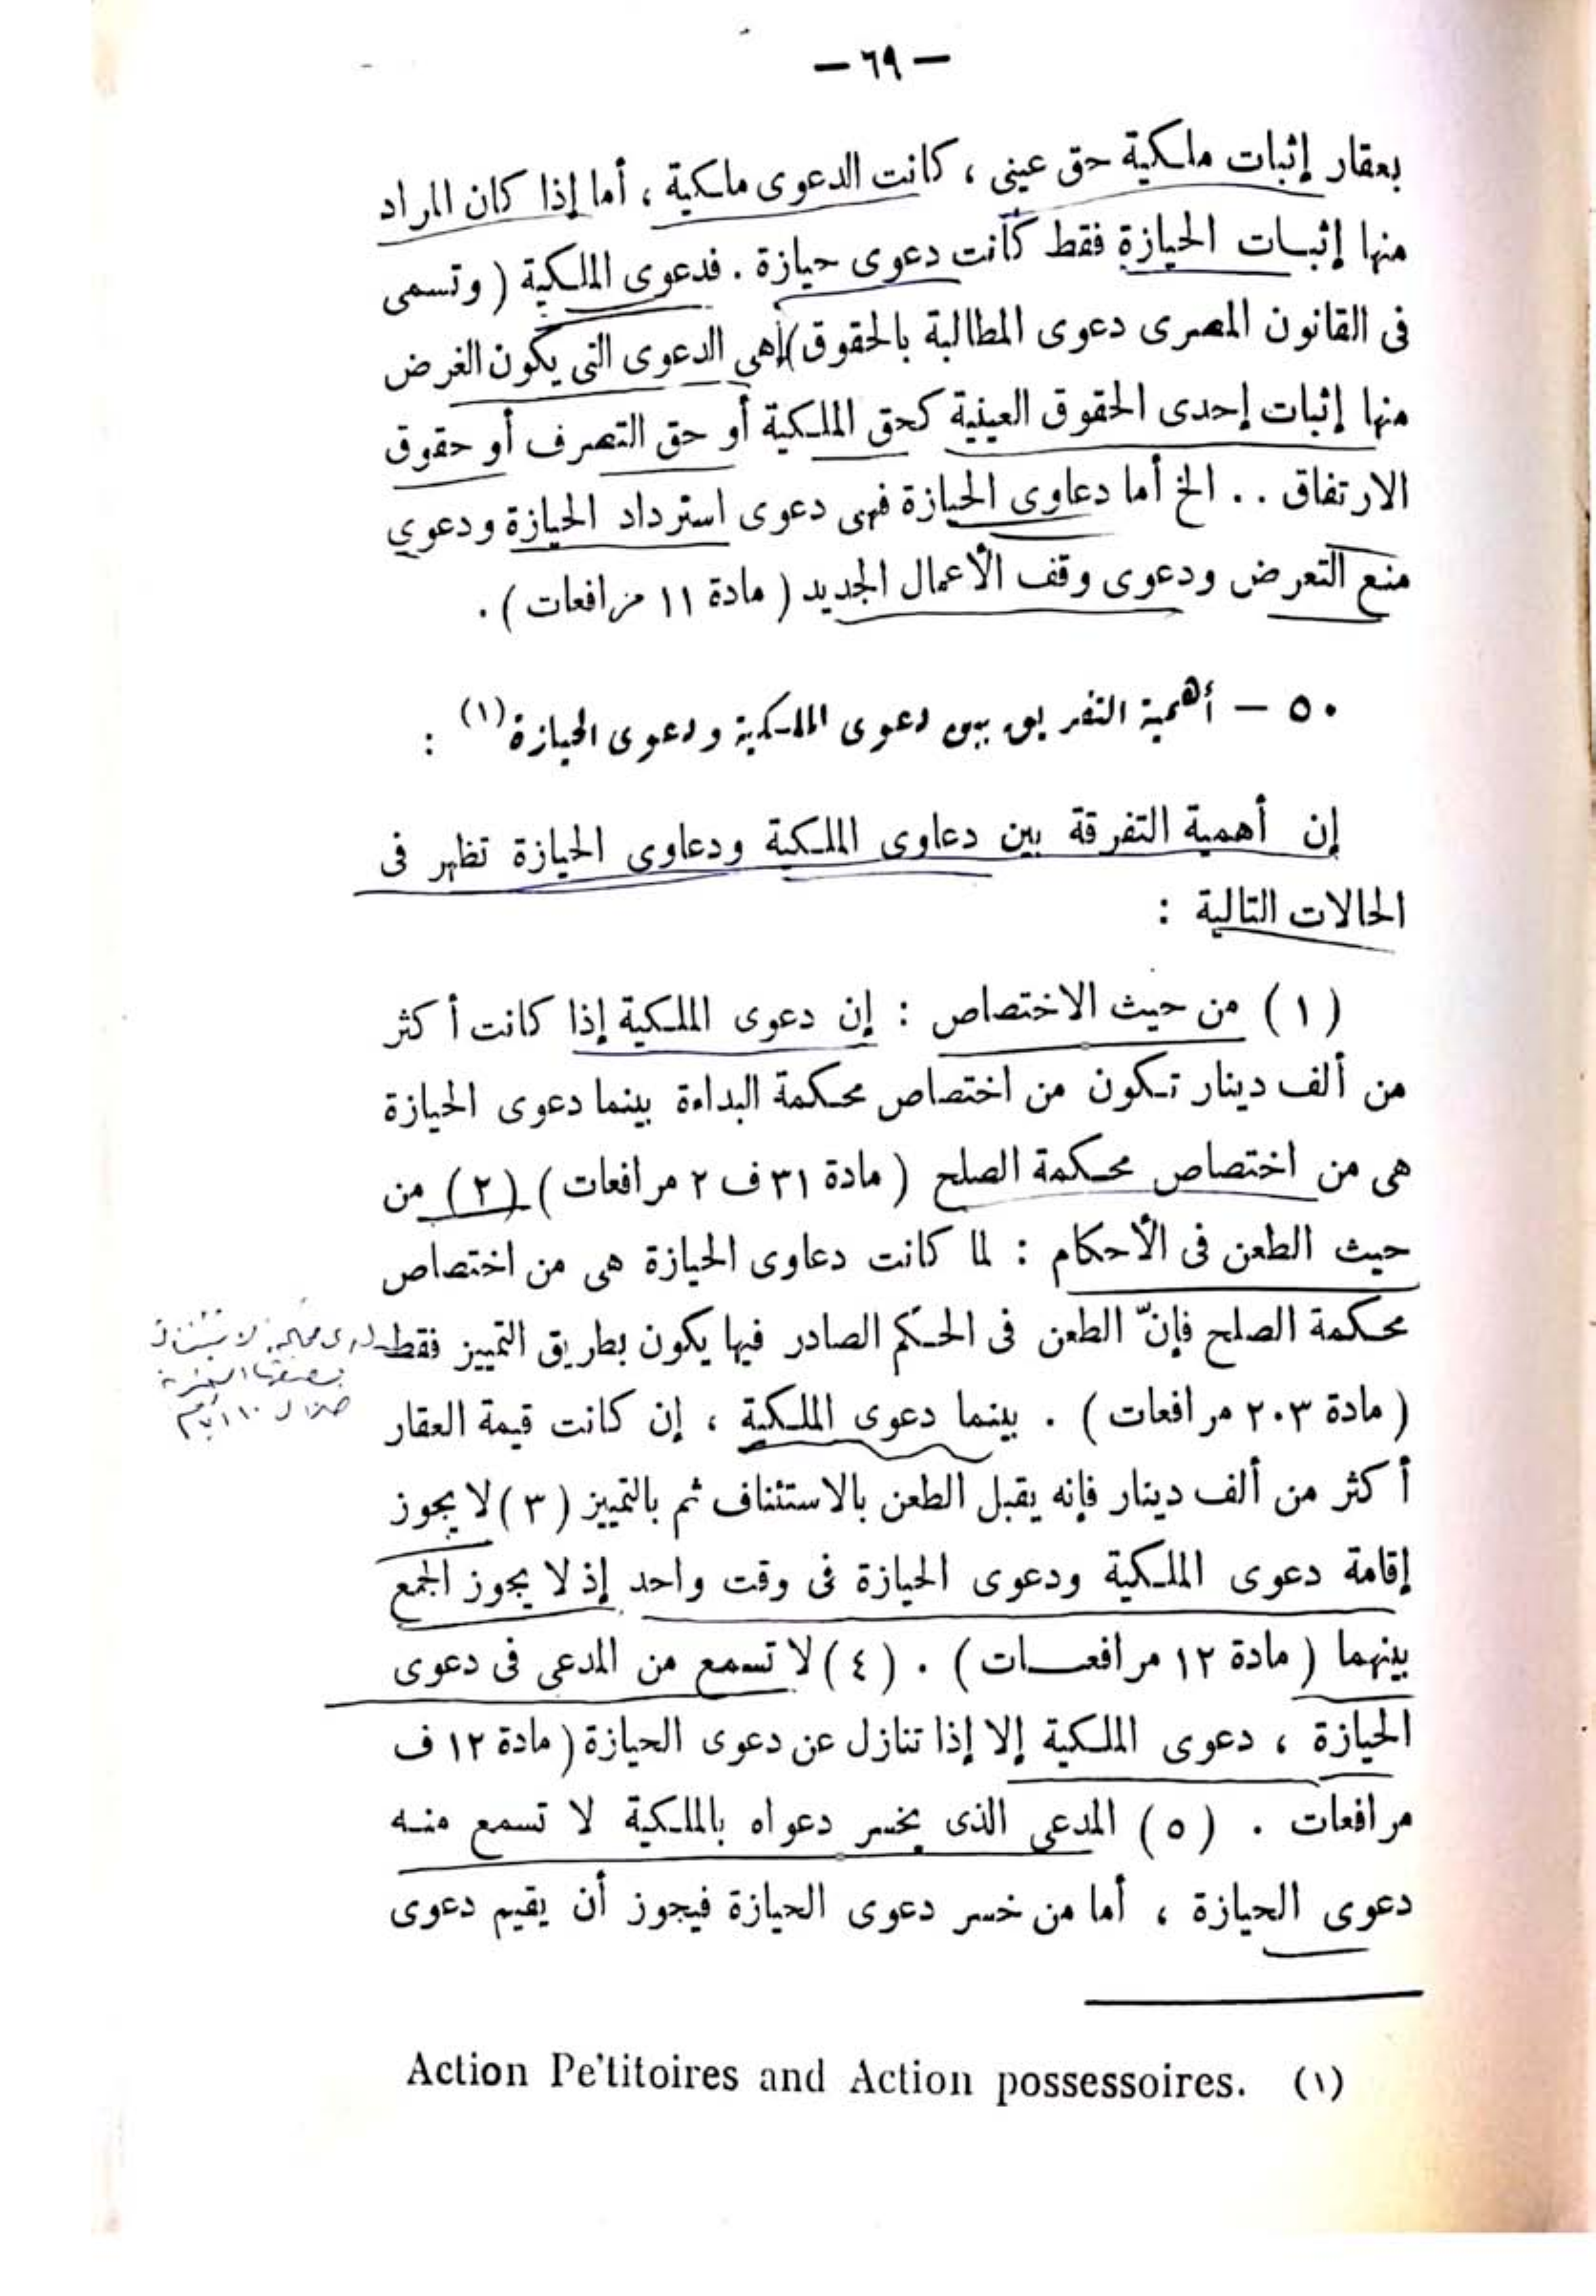 — ٦٩ —
بعقار إثبات ملكية حق عينى ، كانت الدعوى ملكية ، أما إذا كان المراد
منها إثبات الحيازة فقط كانت دعوى حيازة . فدعوى الملكية ( وتسمى
فى القانون المصرى دعوى المطالبة بالحقوق ) هى الدعوى التى يكون الغرض
منها إثبات إحدى الحقوق العينية كحق الملكية أو حق التصرف أو حقوق
الارتفاق . . الخ أما دعاوى الحيازة فهى دعوى استرداد الحيازة ودعوى
منع التعرض ودعوى وقف الأعمال الجديد ( مادة ١١ مرافعات ) .
٥٠ — أهمية التفريق بين دعوى الملكية ودعوى الحيازة (١) :
إن أهمية التفرقة بين دعاوى الملكية ودعاوى الحيازة تظهر فى
الحالات التالية :
( ١ ) من حيث الاختصاص : إن دعوى الملكية إذا كانت أكثر
من ألف دينار تكون من اختصاص محكمة البداءة بينما دعوى الحيازة
هى من اختصاص محكمة الصلح ( مادة ٣١ ف ٢ مرافعات ) ( ٢ ) من
حيث الطعن فى الأحكام : لما كانت دعاوى الحيازة هى من اختصاص
محكمة الصلح فإنّ الطعن فى الحكم الصادر فيها يكون بطريق التمييز فقط
( مادة ٢٠٣ مرافعات ) . بينما دعوى الملكية ، إن كانت قيمة العقار
أكثر من ألف دينار فإنه يقبل الطعن بالاستئناف ثم بالتمييز ( ٣ ) لا يجوز
إقامة دعوى الملكية ودعوى الحيازة فى وقت واحد إذ لا يجوز الجمع
بينهما ( مادة ١٢ مرافعـــات ) . ( ٤ ) لا تسمع من المدعى فى دعوى
الحيازة ، دعوى الملكية إلا إذا تنازل عن دعوى الحيازة ( مادة ١٢ ف
مرافعات . ( ٥ ) المدعى الذى يخسر دعواه بالملكية لا تسمع منه
دعوى الحيازة ، أما من خسر دعوى الحيازة فيجوز أن يقيم دعوى
Action Pe'titoires and Action possessoires. (١)